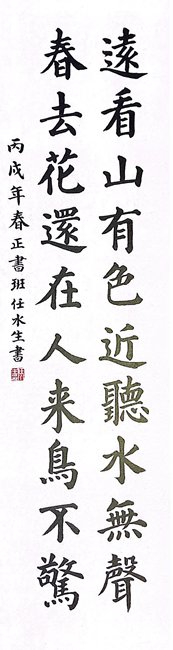 遠看山有色近聽水無聲
春去花還在人来鳥不驚
丙戌年春正書班任水生書